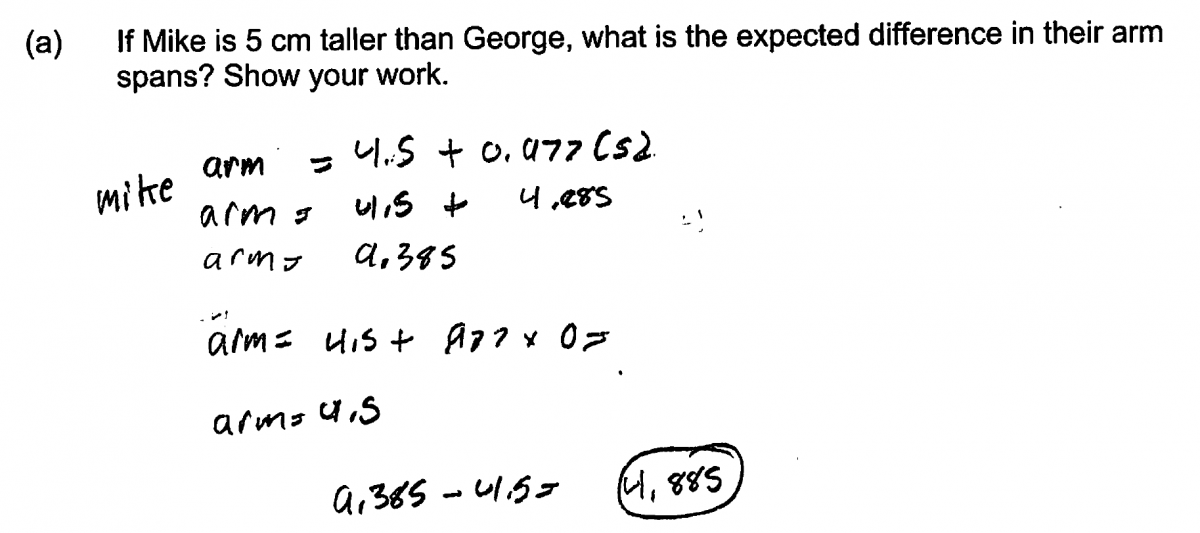 (a) If Mike is 5 cm taller than George, what is the expected difference in their arm
spans? Show your work.
arm = 4.5 + 0.977 (5)
mike
arm = 4.5 + 4.885
arm = 9.385
arm = 4.5 + 977 x 0 =
arm = 4.5
9.385 - 4.5 = 4.885